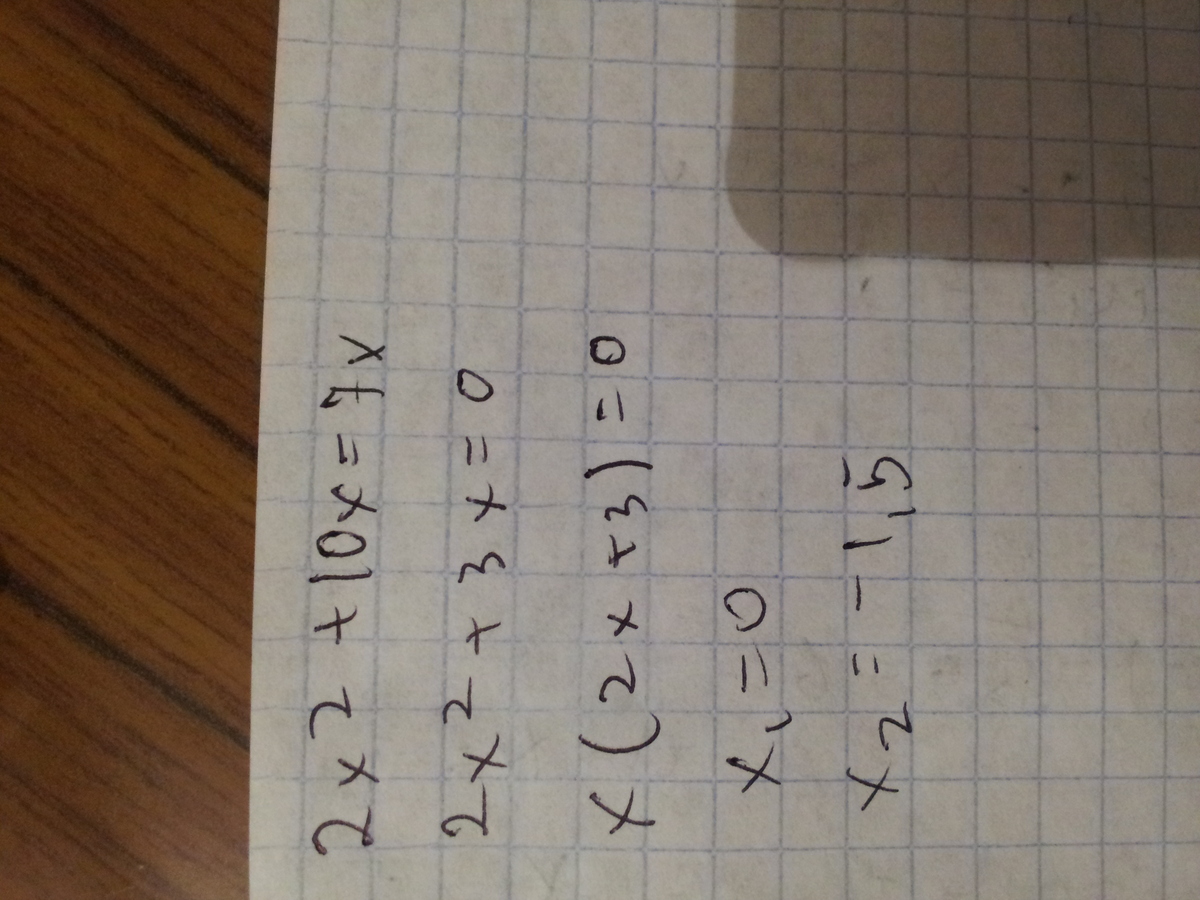 2x² + 10x = 7x
2x² + 3x = 0
x(2x+3) = 0
x₁ = 0
x₂ = -1,5